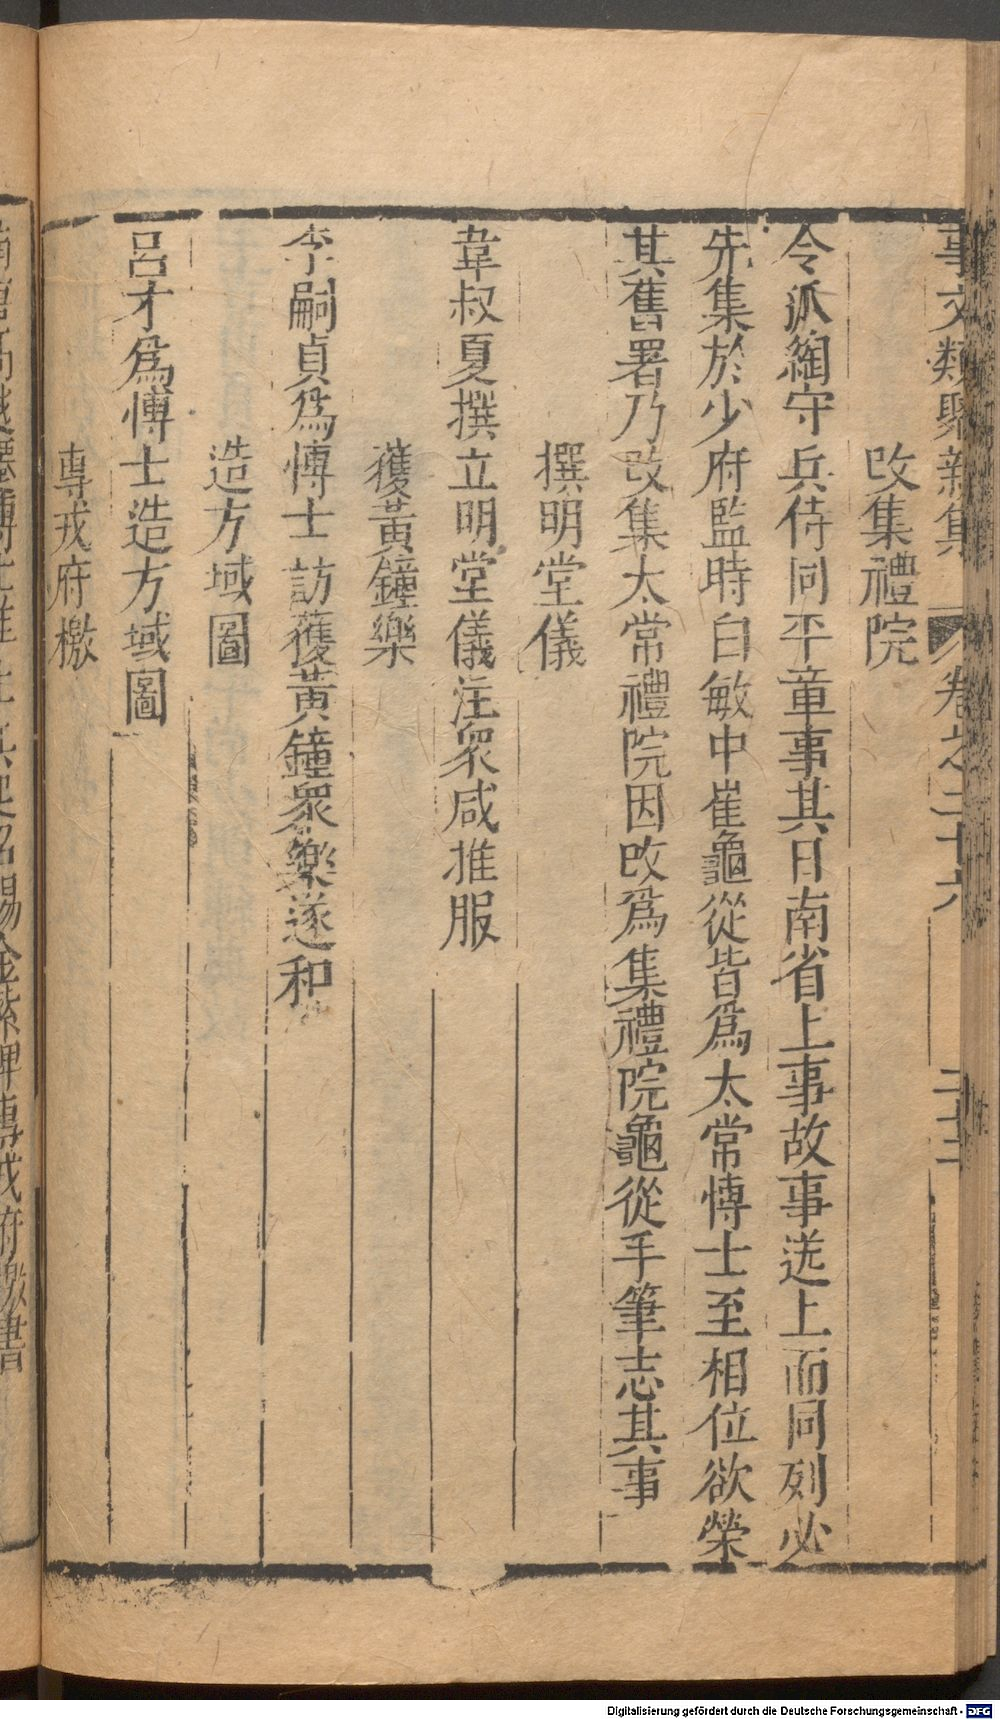 事文類聚新集 卷之二十六 二十三
改集禮院
令狐綯守兵侍同平章事其日南省上事故事送上而同列必
先集於少府監時白敏中崔龜從皆爲太常博士至相位欲榮
其舊署乃改集太常禮院因改爲集禮院龜從手筆志其事
撰明堂儀
韋叔夏撰立明堂儀注衆咸推服
獲黃鐘樂
李嗣貞爲博士訪獲黃鐘衆樂遂和
造方域圖
呂才爲博士造方域圖
專戎府檄
Digitalisierung gefördert durch die Deutsche Forschungsgemeinschaft - DFG